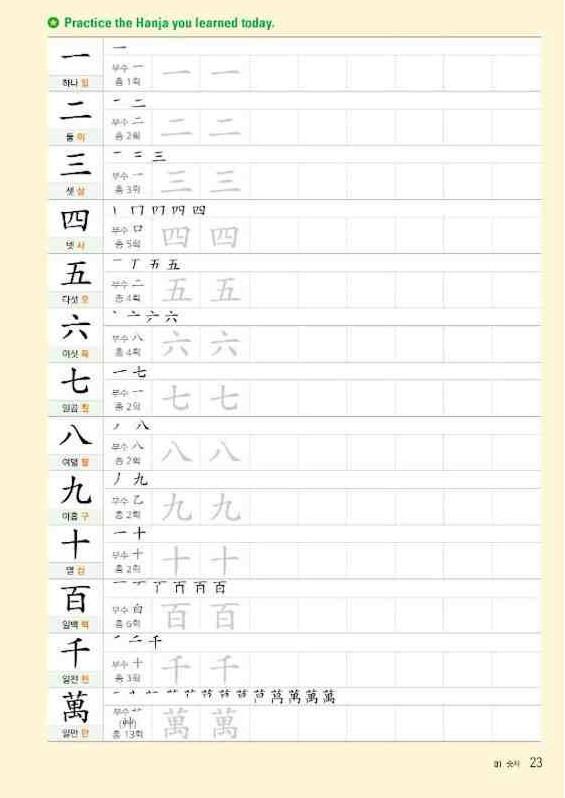 Practice the Hanja you learned today.
一
一
부수 一 一 一
하나 일 총 1획
二
一 二
부수 二 二 二
둘 이 총 2획
三
一 二 三
부수 一 三 三
셋 삼 총 3획
四
丨 冂 四
부수 口 四 四
넷 사 총 5획
五
一 丆 五 五
부수 二 五 五
다섯 오 총 4획
六
丶 亠 六 六
부수 八 六 六
여섯 육 총 4획
七
一 七
부수 一 七 七
일곱 칠 총 2획
八
丿 八
부수 八 八 八
여덟 팔 총 2획
九
丿 九
부수 乙 九 九
아홉 구 총 2획
十
一 十
부수 十 十 十
열 십 총 2획
百
一 丆 百
부수 白 百 百
일백 백 총 6획
千
丿 二 千
부수 十 千 千
일천 천 총 3획
萬
萬 萬 萬
부수 艹 萬 萬
(艸)
일만 만 총 13획
01 숫자 23